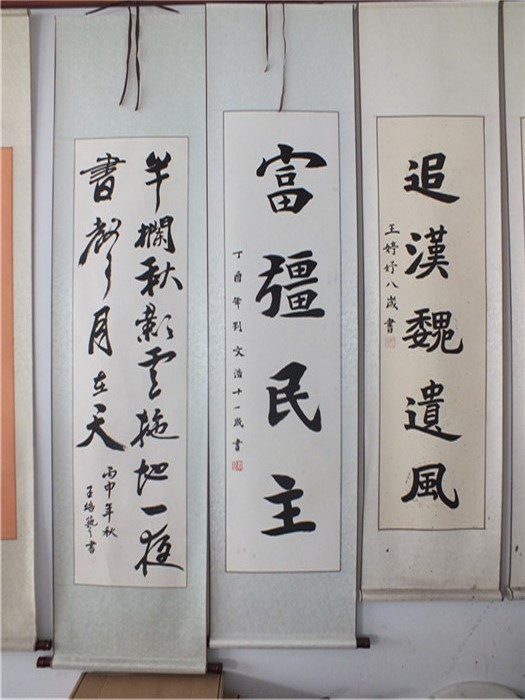 追漢魏遺風
王婷妤八歲書
富彊民主
丁酉年刘文浩十一歲書
半欄秋影雲拖地一夜
書聲月在天
丙申年秋
王 書